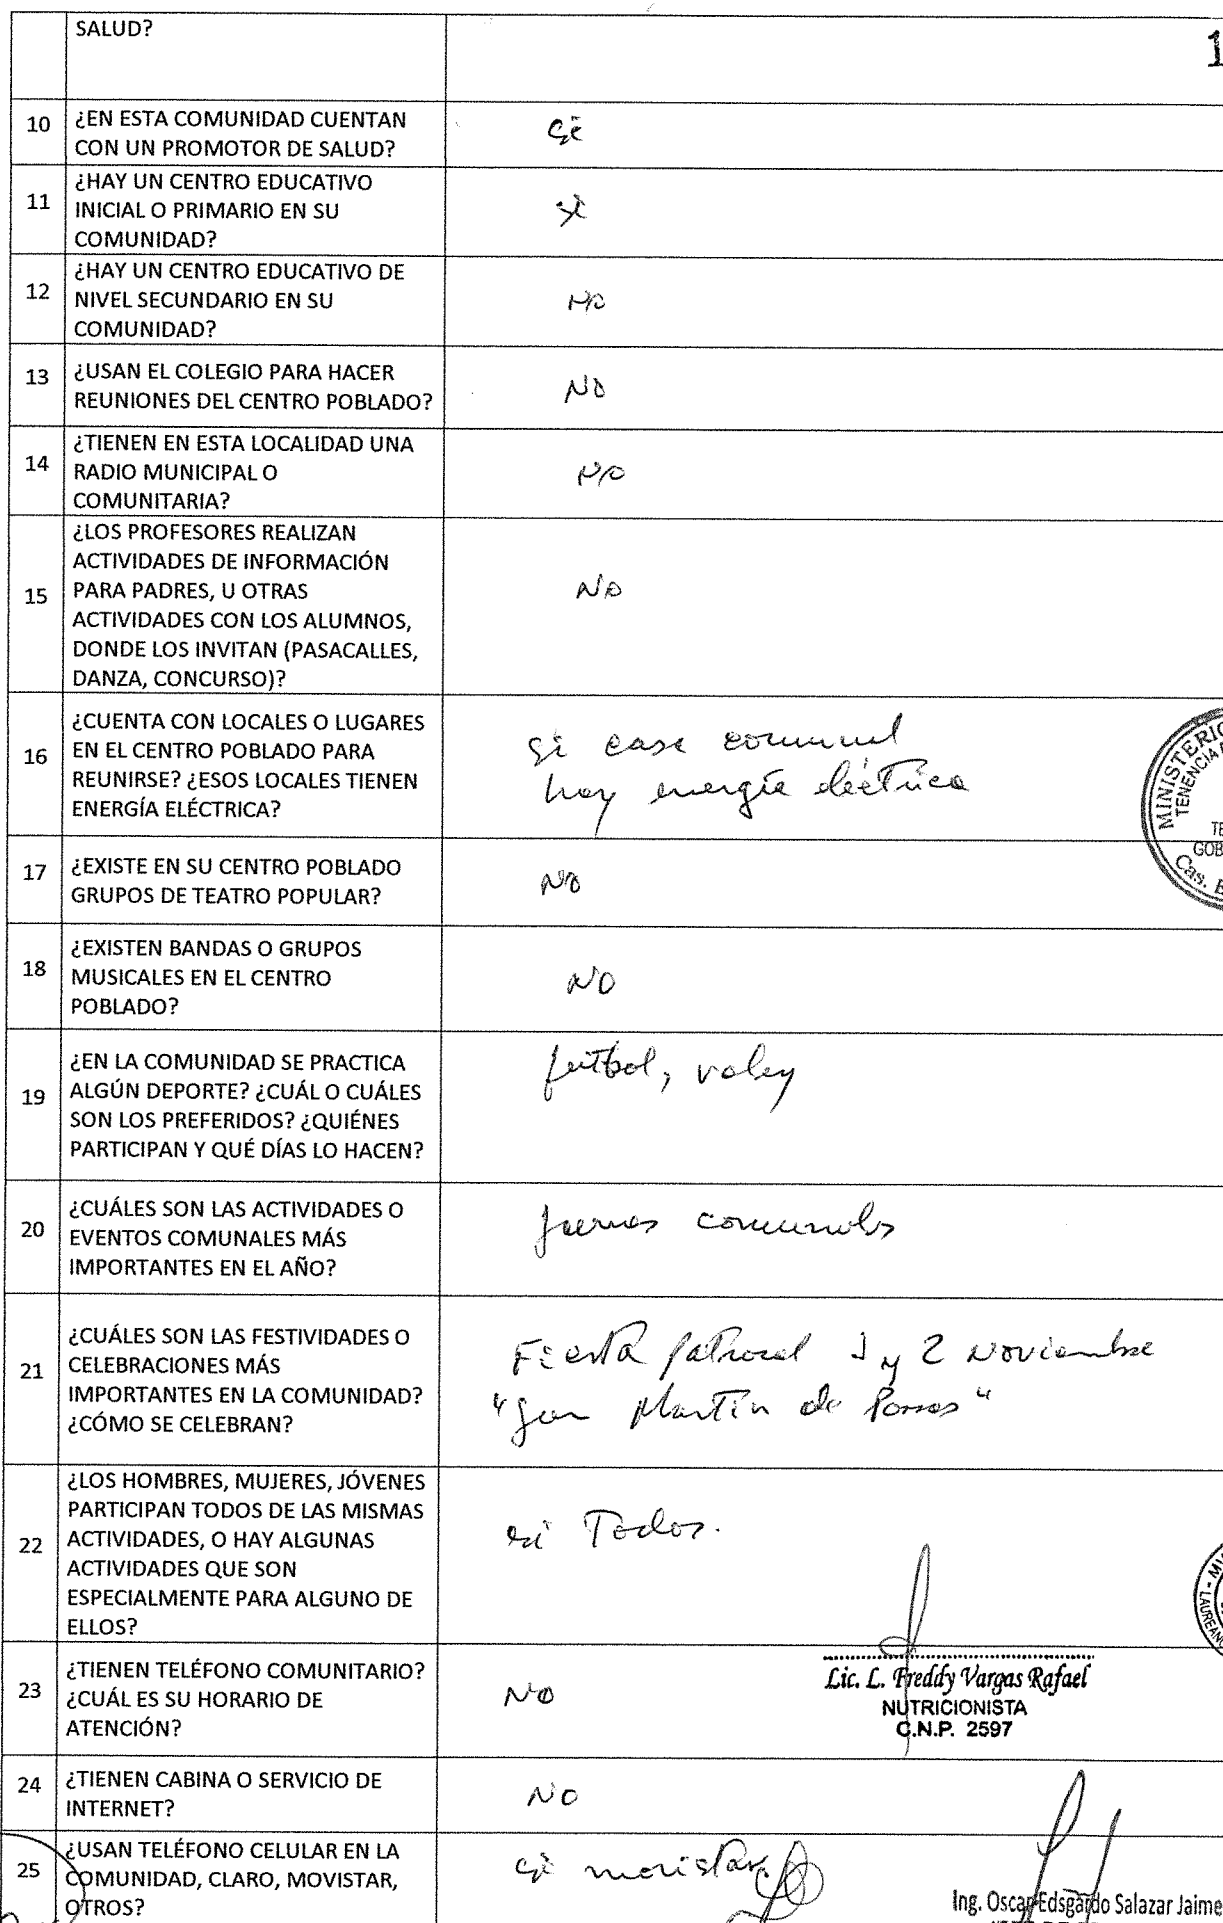 SALUD?
1
10 ¿EN ESTA COMUNIDAD CUENTAN
CON UN PROMOTOR DE SALUD?
si
11 ¿HAY UN CENTRO EDUCATIVO
INICIAL O PRIMARIO EN SU
COMUNIDAD?
si
12 ¿HAY UN CENTRO EDUCATIVO DE
NIVEL SECUNDARIO EN SU
COMUNIDAD?
NO
13 ¿USAN EL COLEGIO PARA HACER
REUNIONES DEL CENTRO POBLADO?
NO
14 ¿TIENEN EN ESTA LOCALIDAD UNA
RADIO MUNICIPAL O
COMUNITARIA?
NO
15 ¿LOS PROFESORES REALIZAN
ACTIVIDADES DE INFORMACIÓN
PARA PADRES, U OTRAS
ACTIVIDADES CON LOS ALUMNOS,
DONDE LOS INVITAN (PASACALLES,
DANZA, CONCURSO)?
NO
16 ¿CUENTA CON LOCALES O LUGARES
EN EL CENTRO POBLADO PARA
REUNIRSE? ¿ESOS LOCALES TIENEN
ENERGÍA ELÉCTRICA?
si casa comunal
hay energía eléctrica
MINISTERIO
TENENCIA
TE
GOB
Cas.
17 ¿EXISTE EN SU CENTRO POBLADO
GRUPOS DE TEATRO POPULAR?
NO
18 ¿EXISTEN BANDAS O GRUPOS
MUSICALES EN EL CENTRO
POBLADO?
NO
19 ¿EN LA COMUNIDAD SE PRACTICA
ALGÚN DEPORTE? ¿CUÁL O CUÁLES
SON LOS PREFERIDOS? ¿QUIÉNES
PARTICIPAN Y QUÉ DÍAS LO HACEN?
futbol, voley
20 ¿CUÁLES SON LAS ACTIVIDADES O
EVENTOS COMUNALES MÁS
IMPORTANTES EN EL AÑO?
comunales
21 ¿CUÁLES SON LAS FESTIVIDADES O
CELEBRACIONES MÁS
IMPORTANTES EN LA COMUNIDAD?
¿CÓMO SE CELEBRAN?
Fiesta patronal 1 y 2 Noviembre
"San Martin de Porras"
22 ¿LOS HOMBRES, MUJERES, JÓVENES
PARTICIPAN TODOS DE LAS MISMAS
ACTIVIDADES, O HAY ALGUNAS
ACTIVIDADES QUE SON
ESPECIALMENTE PARA ALGUNO DE
ELLOS?
si Todos.
Lic. L. Freddy Vargas Rafael
NUTRICIONISTA
C.N.P. 2597
23 ¿TIENEN TELÉFONO COMUNITARIO?
¿CUÁL ES SU HORARIO DE
ATENCIÓN?
NO
24 ¿TIENEN CABINA O SERVICIO DE
INTERNET?
NO
25 ¿USAN TELÉFONO CELULAR EN LA
COMUNIDAD, CLARO, MOVISTAR,
OTROS?
si movistar
Ing. Oscar Edsgardo Salazar Jaime